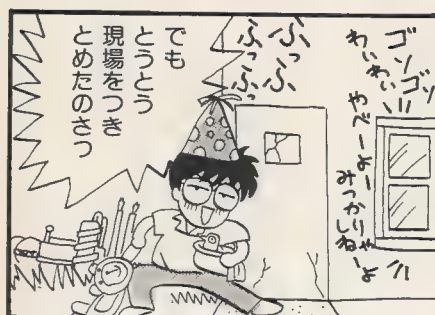 ゴソゴソ
わいわい
やべーよー
みつかりゃ
しねーよ
ふっふっ
ふっふ
でも
とうとう
現場をつき
とめたのさっ